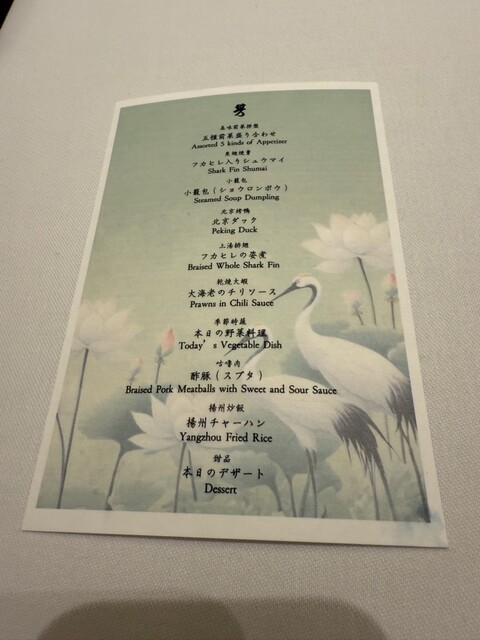 美味前菜拼盤
五種前菜盛り合わせ
Assorted 5 kinds of Appetizer
魚翅焼賣
フカヒレ入りシュウマイ
Shark Fin Shumai
小籠包
小籠包(ショウロンポウ)
Steamed Soup Dumpling
北京烤鴨
北京ダック
Peking Duck
上湯排翅
フカヒレの姿煮
Braised Whole Shark Fin
乾焼大蝦
大海老のチリソース
Prawns in Chili Sauce
季節時蔬
本日の野菜料理
Today's Vegetable Dish
咕嚕肉
酢豚(スブタ)
Braised Pork Meatballs with Sweet and Sour Sauce
揚州炒飯
揚州チャーハン
Yangzhou Fried Rice
甜品
本日のデザート
Dessert